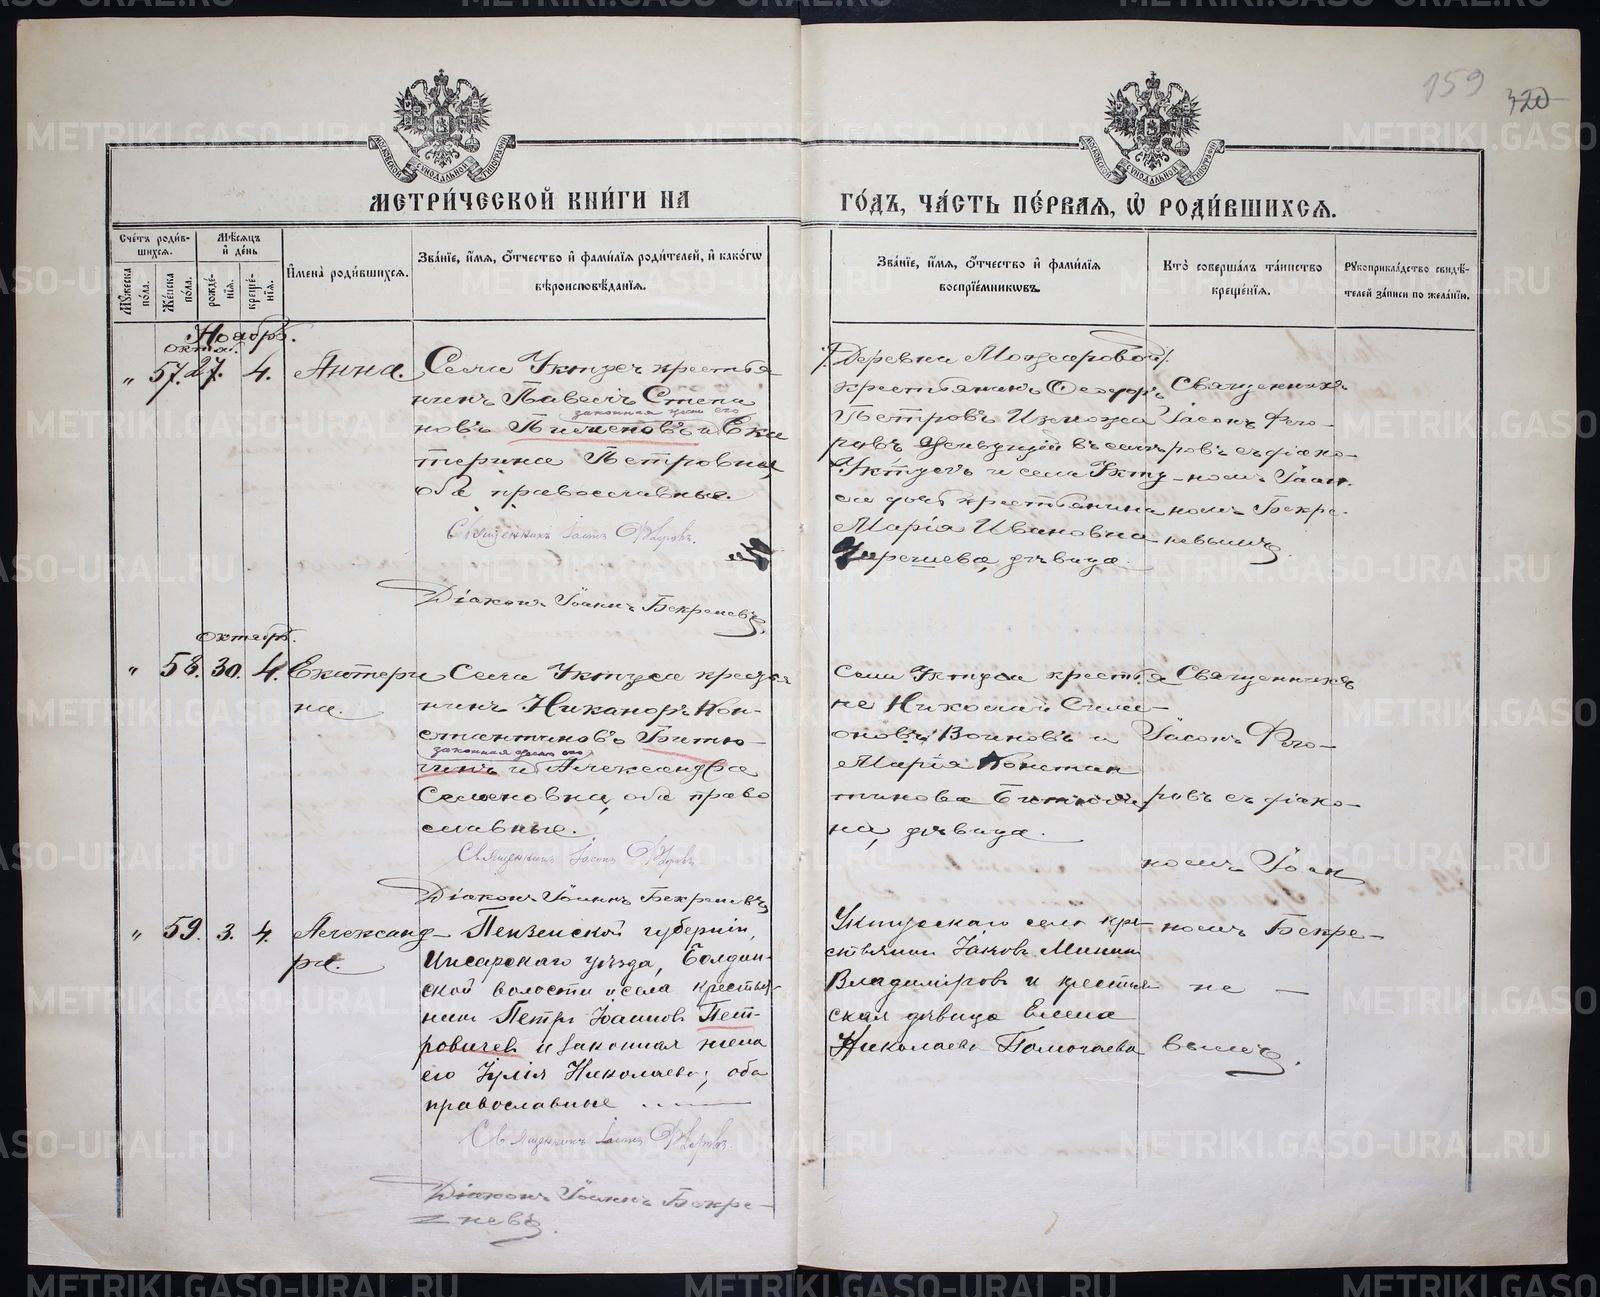 159
320
МОСКОВСКОЙ СѴНОДАЛЬНОЙ ТИПОГРАФІИ
МОСКОВСКОЙ СѴНОДАЛЬНОЙ ТИПОГРАФІИ
МЕТРИ́ЧЕСКОЙ КНИ́ГИ НА
ГО́ДЪ, ЧА́СТЬ ПЕ́РВАЯ, Ѿ РОДИ́ВШИХСЯ.
Сче́тъ роди́в-
шихся.
Мꙋжеска по́ла.
Же́нска по́ла.
Мѣ́сяцъ
и҆ де́нь
рожде́-
нїя.
креще́-
нїя.
И҆мена̀ роди́вшихся.
Зва́нїе, и҆́мя, ѻ҆́тчество и҆ фами́лїя роди́телей, и҆ како́гѡ
вѣроисповѣ́данїя.
Зва́нїе, и҆́мя, ѻ҆́тчество и҆ фами́лїя
воспрїе́мникѡвъ.
Кто̀ соверша́лъ та́инство
креще́нїя.
Рꙋкоприкла́дство свидѣ́-
телей за́писи по жела́нїю.
Ноябрь.
октяб.
" 57. 27. 4. Анна.
Села Уктуса крестья
нинъ Павелъ Степа
законная жена его
новъ Пименовъ и Ека
терина Петровна,
оба православные.
Священникъ Іасонъ Флоровъ.
Діаконъ Іоаннъ Бекреневъ.
Деревни
крестьянинъ Ѳеодоръ
Петровъ
въ селѣ
Уктусѣ и села Укту
са дочь крестьянина
Марія Ивановна
дѣвица.
Священникъ
Іасонъ Фло-
ровъ съ діако-
номъ Іоан-
номъ Бекре-
невымъ.
октябрь.
" 58. 30. 4. Екатери
на.
Села Уктуса крестья
нинъ Никаноръ Кон-
стантиновъ Битю-
законная жена его
цинъ и Александра
Семеновна, оба право
славные.
Священникъ Іасонъ Флоровъ
Діаконъ Іоаннъ Бекреневъ
Села Уктуса крестья
не Николай Симе-
оновъ Воиновъ и
Марія Констан
тинова
на, дѣвица.
Священникъ
Іасонъ Фло-
ровъ съ діако-
номъ Іоан
номъ Бекре-
не —
вымъ.
" 59. 3. 4. Александ-
ра.
Пензенской губерніи,
Инсарскаго уѣзда, Болдин-
ской волости и села крестья-
нин Петръ Іоаннов Пет-
ровичев и законная жена
его Іулія Николаева; оба
православные
Священникъ Іасонъ Флоровъ.
Діаконъ Іоаннъ Бекре-
невъ
Уктусскаго села кре-
стьянин Іаков Минин
Владиміров и крестьян
ская дѣвица Елена
Николаева
METRIKI.GASO-URAL.RU